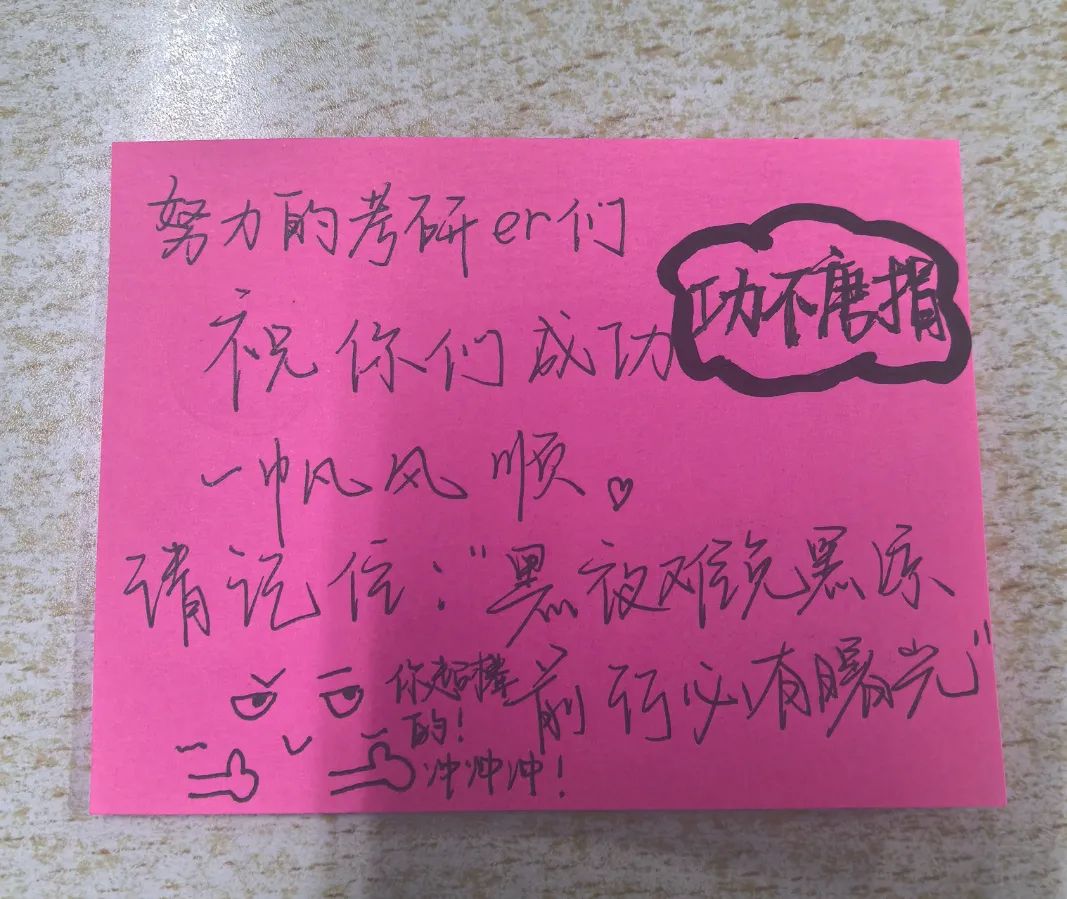 努力的考研er们
功不唐捐
祝你们成功
一帆风顺。
请记住:“黑夜难免黑凉
前行必有曙光”
你超棒
的!
冲冲冲!